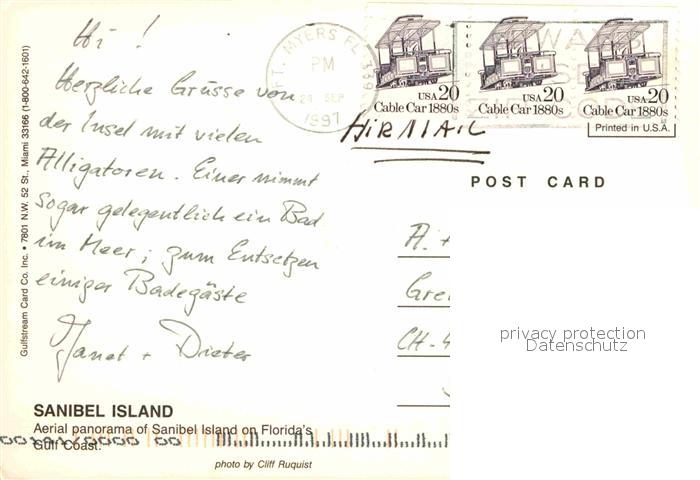 Hi !
Herzliche Grüsse von
der Insel mit vielen
Alligatoren. Einer nimmt
sogar gelegentlich ein Bad
im Meer; zum Entsetzen
einiger Badegäste
Janet + Dieter
SANIBEL ISLAND
Aerial panorama of Sanibel Island on Florida's
Gulf Coast.
photo by Cliff Ruquist
Gulfstream Card Co. Inc. • 7801 N.W. 52 St., Miami 33166 (1-800-642-1601)
FT. MYERS FL 339
PM
24 SEP
1997
USA 20
Cable Car 1880s
USA 20
Cable Car 1880s
USA 20
Cable Car 1880s
Printed in U.S.A.
AIRMAIL
POST CARD
A. +
Gre
CH-4
privacy protection
Datenschutz